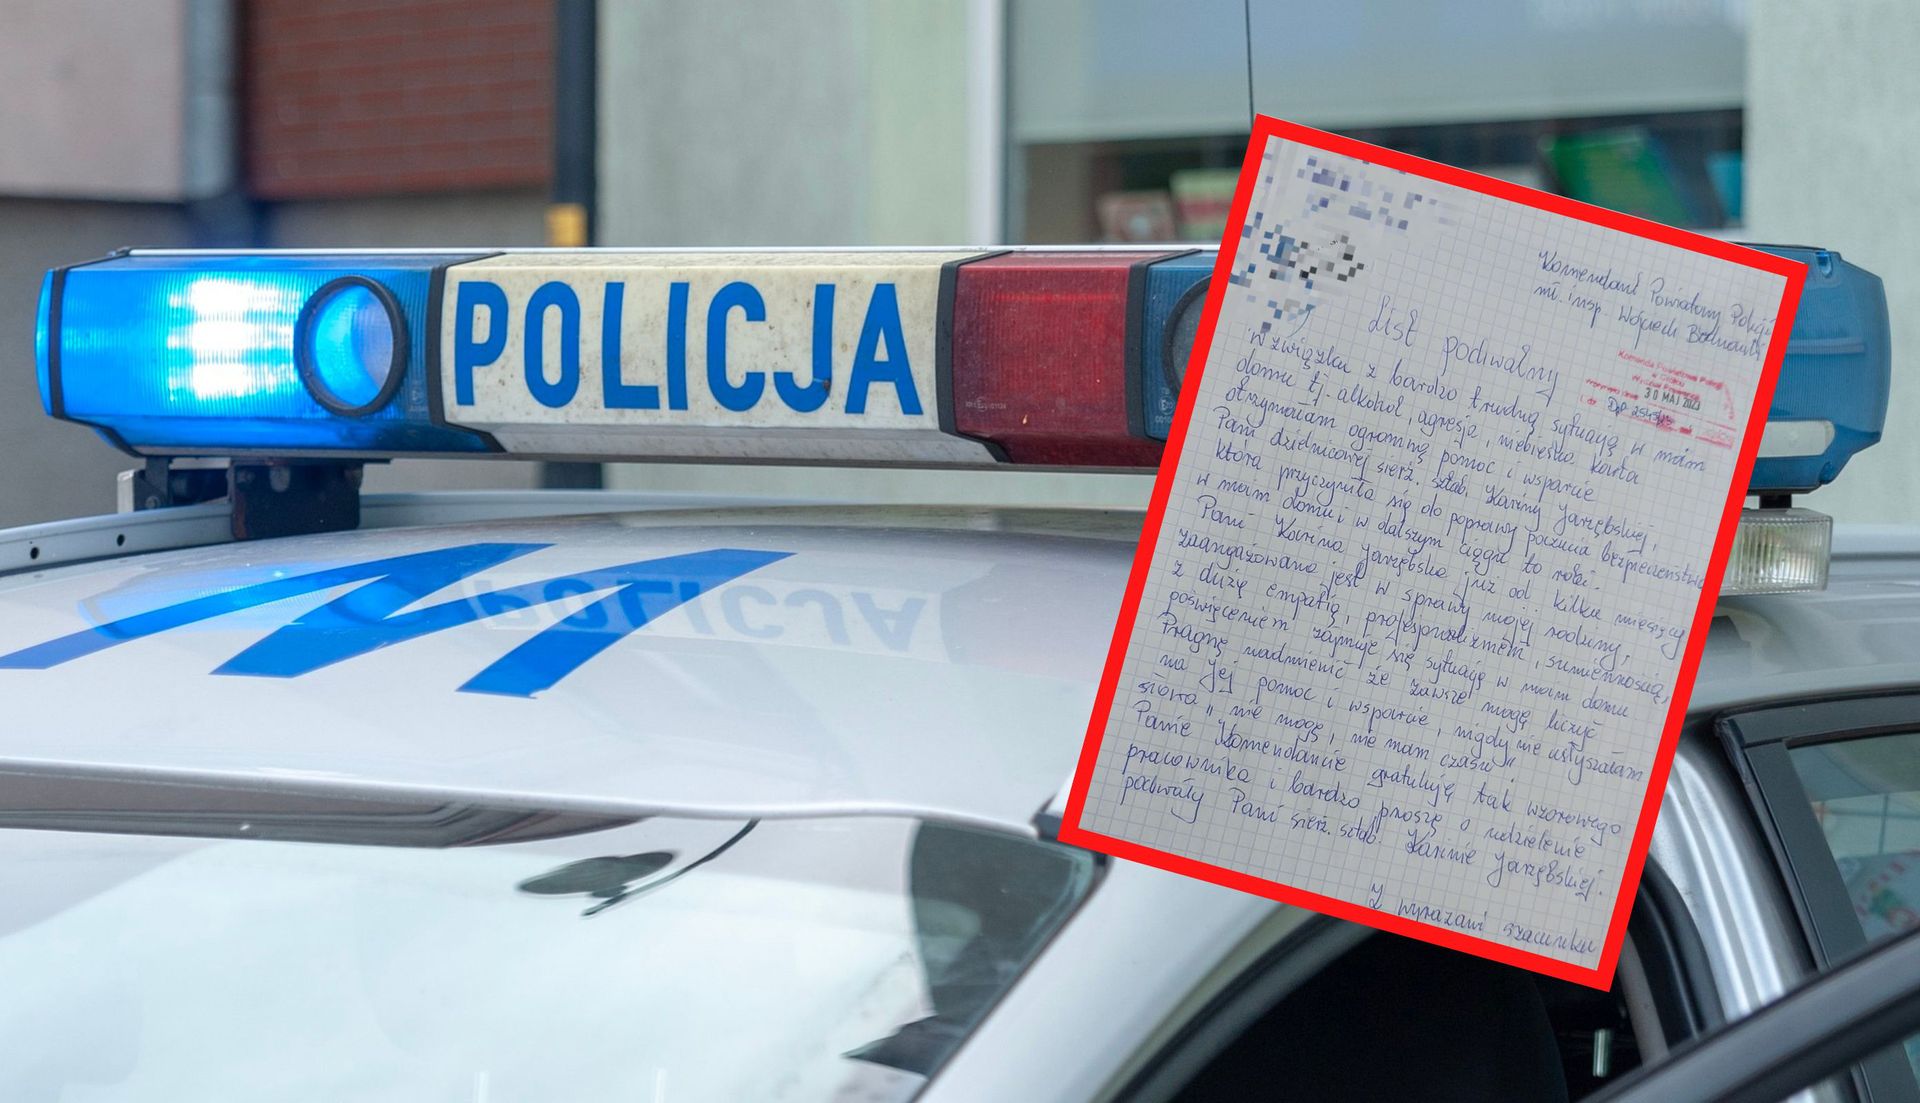 POLICJA
W
Komendant Powiatowy Policji
mł. insp. Wojciech Bednarski
List pochwalny
Komenda Powiatowa Policji
30 MAJ 2023
W związku z bardzo trudną sytuacją w moim
domu tj. alkohol, agresja, niebieska karta
otrzymałam ogromną pomoc i wsparcie
Pani dzielnicowej sierż. sztab. Kariny Jarzębskiej,
która przyczyniła się do poprawy poczucia bezpieczeństwa
w moim domu i w dalszym ciągu to robi.
Pani Karina Jarzębska już od kilku miesięcy
zaangażowana jest w sprawy mojej rodziny,
z dużą empatią, profesjonalizmem, sumiennością,
poświęceniem zajmuje się sytuacją w moim domu
Pragnę nadmienić że zawsze mogę liczyć
na Jej pomoc i wsparcie, nigdy nie usłyszałam
słowa "nie mogę, nie mam czasu".
Panie Komendancie gratuluję tak wzorowego
pracownika i bardzo proszę o udzielenie
pochwały Pani sierż. sztab. Karinie Jarzębskiej.
Z wyrazami szacunku